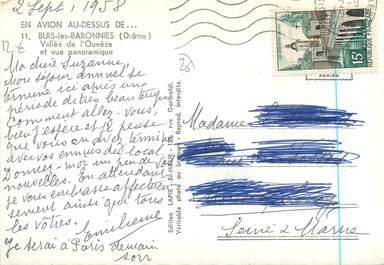 2 Sept, 1958
EN AVION AU-DESSUS DE...
12-6
11. BUIS-les-BARONNIES (Drôme)
Vallée de l'Ouvèze
et vue panoramique
Ma chère Suzanne,
Mon séjour annuel se
termine ici après une
période de très beau temps
Comment allez-vous,
bien j'espère et je pense
que vous en avez terminé
avec vos ennuis de local.
Donnez-moi un peu de vos
nouvelles. En attendant
je vous embrasse affectueu
sement ainsi que tous
les vôtres. Emilienne
Je serai à Paris demain
soir
Edition LAPIE - St-MAUR - 126, rue Garibaldi
Véritable photo au Reprod. interdite.
15F
Madame
Seine & Marne